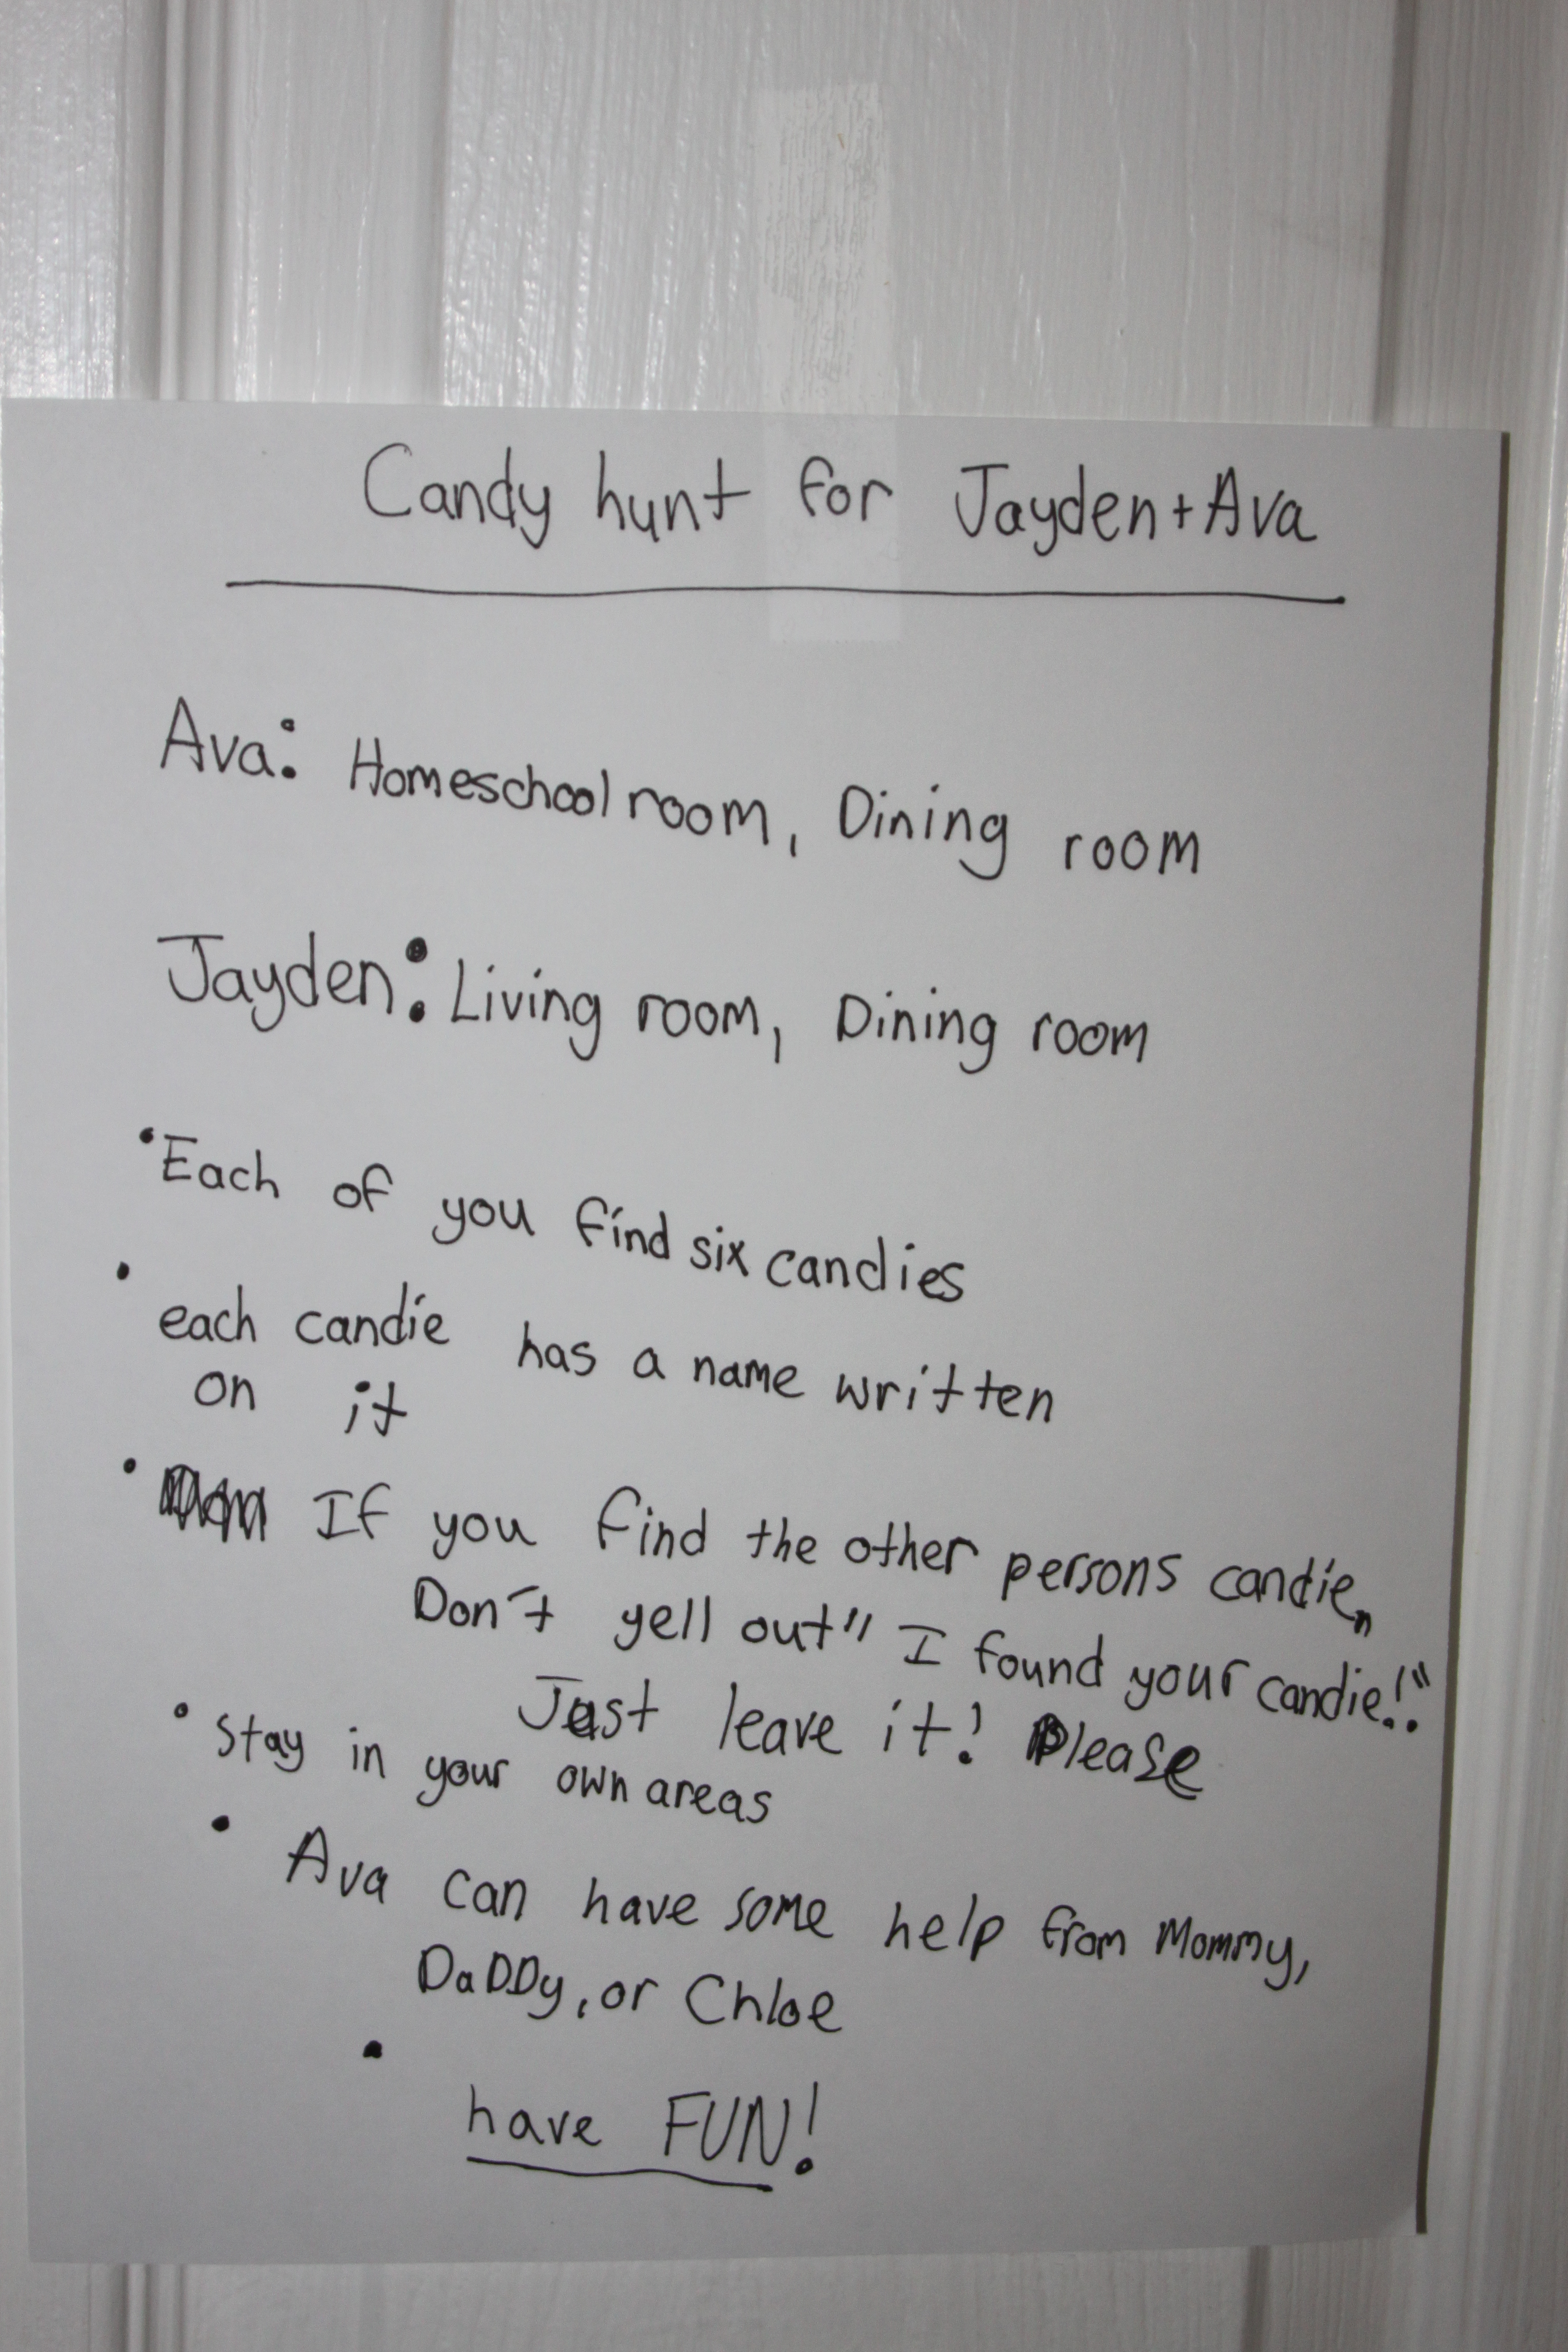 Candy hunt for Jayden + Ava
Ava: Homeschool room, Dining room
Jayden: Living room, Dining room
• Each of you find six candies
• each candie has a name written
on it
• If you find the other persons candie,
Don't yell out "I found your candie!!"
Just leave it! Please
• Stay in your own areas
• Ava can have some help from Mommy,
DaDDy, or Chloe
• have FUN!